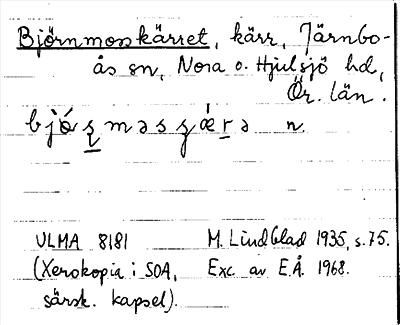 Björnmosskärret, kärr, Järnbo-
ås sn, Nora o. Hjulsjö hd,
Ör. län.
n.
ULMA 8181 M. Lindblad 1935, s. 75.
(Xerokopia i SOA, Exc. av E.Å. 1968.
särsk. kapsel).